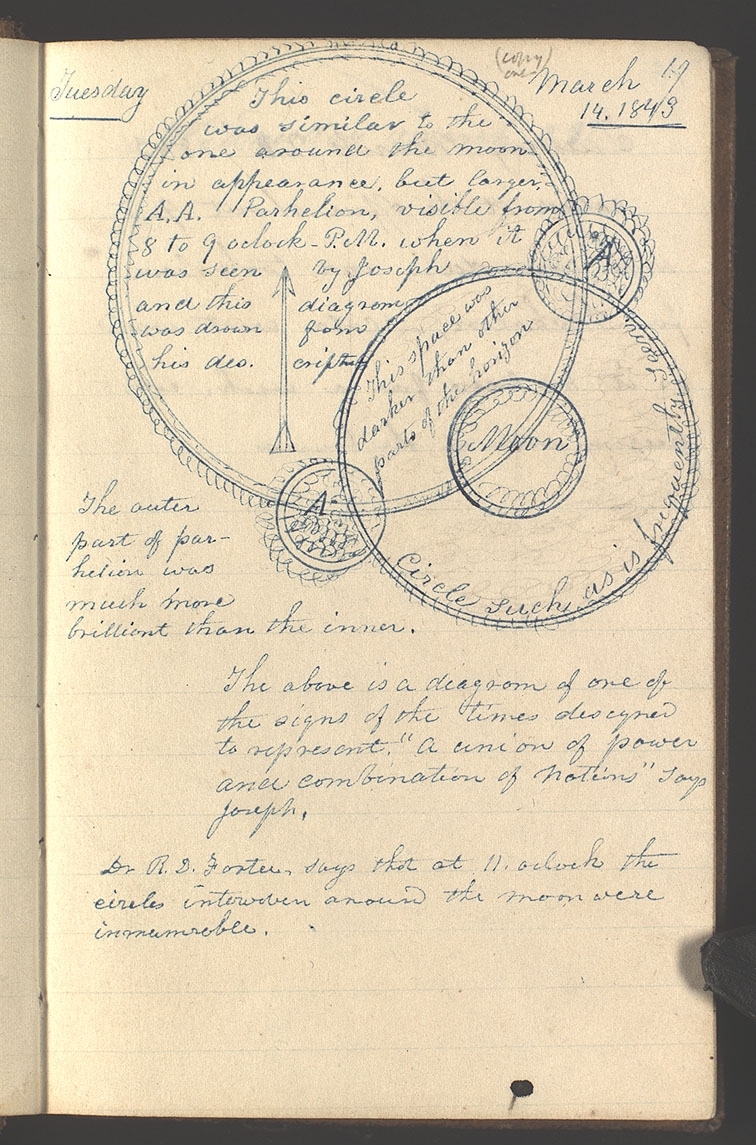 Tuesday
(copy
one)
March 19
14. 1843
This circle
was similar to the
one around the moon
in appearance, but larger.
A.A. Parhelion, visible from
8 to 9 oclock - P.M. when it
was seen by Joseph
and this diagram
was drawn from
his des. cription
This space was
darker than other
parts of the horizon
Moon
A
A
Circle such as is frequently seen
The outer
part of par-
helion was
much more
brilliant than the inner.
The above is a diagram of one of
the signs of the times designed
to represent. "A union of power
and combination of Nations" says
Joseph.
Dr R. D. Foster, says that at 11. oclock the
circles interwoven around the moon were
innumerable.